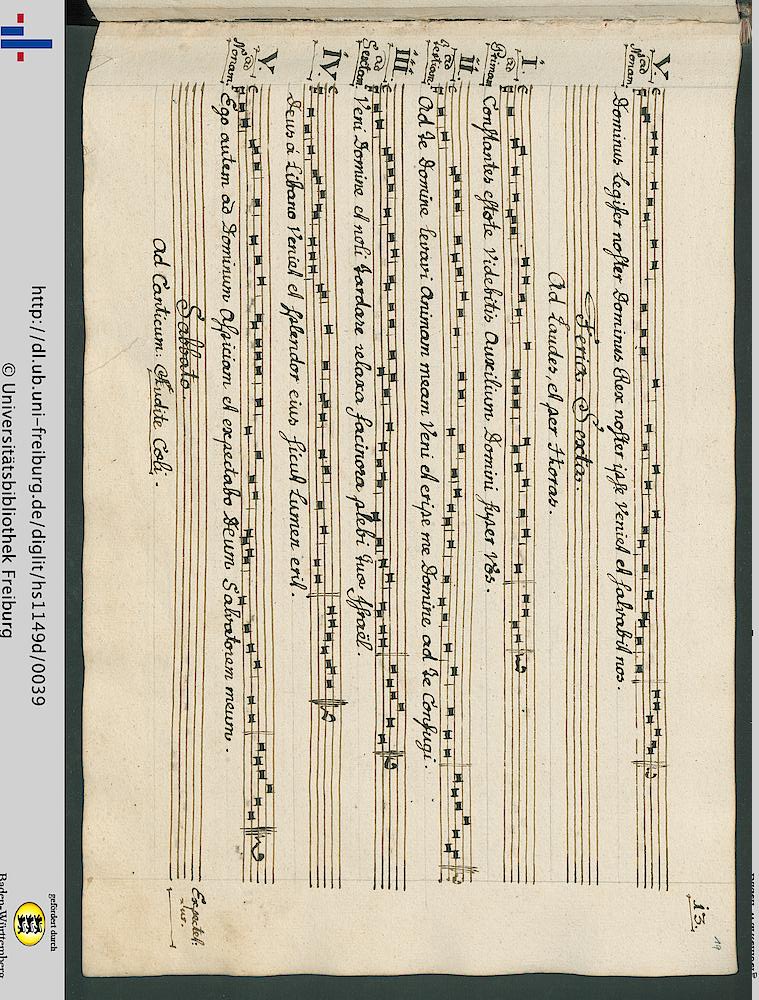 13.
19
V.
Ad Nonam.
Dominus Legifer noster Dominus Rex noster ipse Veniet et salvabit nos.
Feria Sexta.
Ad Laudes, et per Horas.
I.
ad Primam
Constantes estote Videbitis Auxilium Domini super Vos.
II.
ad tertiam.
Ad te Domine levavi Animam meam Veni et eripe me Domine ad te Confugi.
III.
ad Sextam
Veni Domine et noli tardare relaxa facinora plebi tuæ Israël.
IV.
Deus á Libano Veniet et splendor eius sicut Lumen erit.
V.
ad Nonam.
Ego autem ad Dominum Aspiciam et expectabo Deum Salvatorem meum.
Sabbato.
Ad Canticum: Audite Cœli.
Expectetur.
http://dl.ub.uni-freiburg.de/diglit/hs1149d/0039
© Universitätsbibliothek Freiburg
gefördert durch
Baden-Württemberg